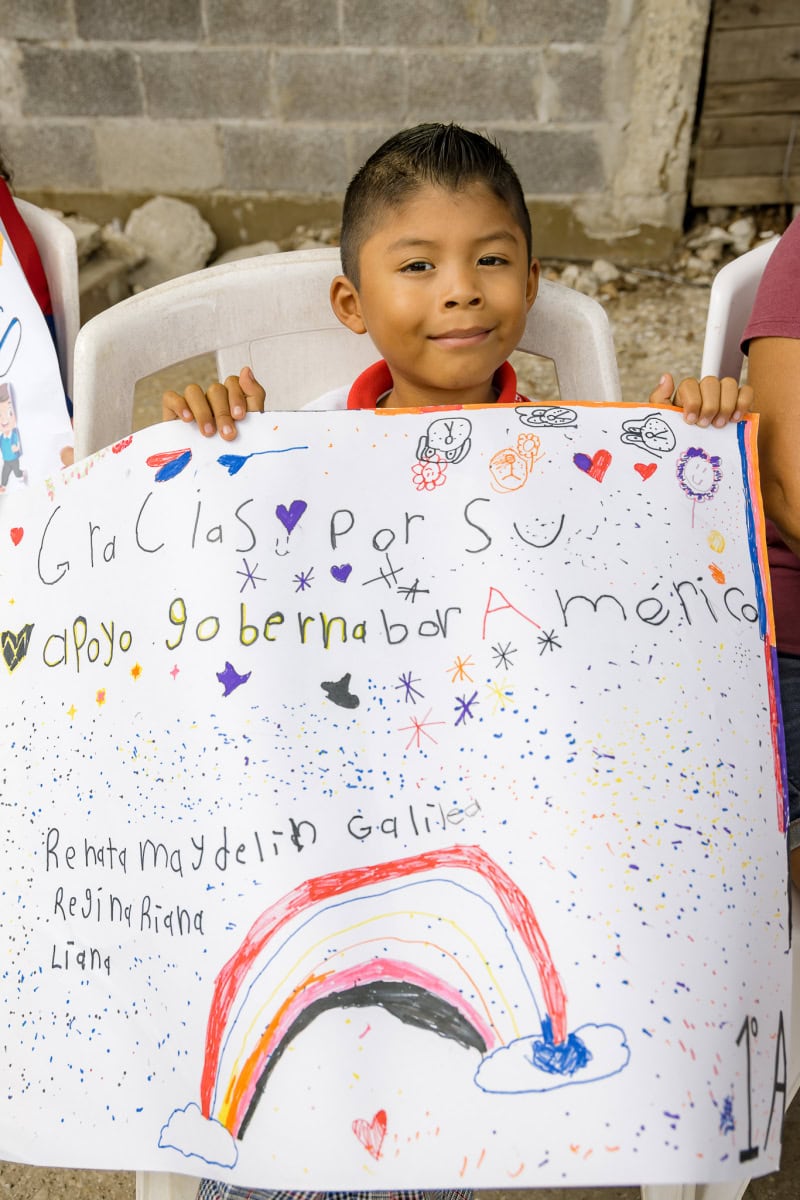 Gracias por su
apoyo gobernabor América
Renata maydelin Galilea
Regina Riana
Liana
1° A